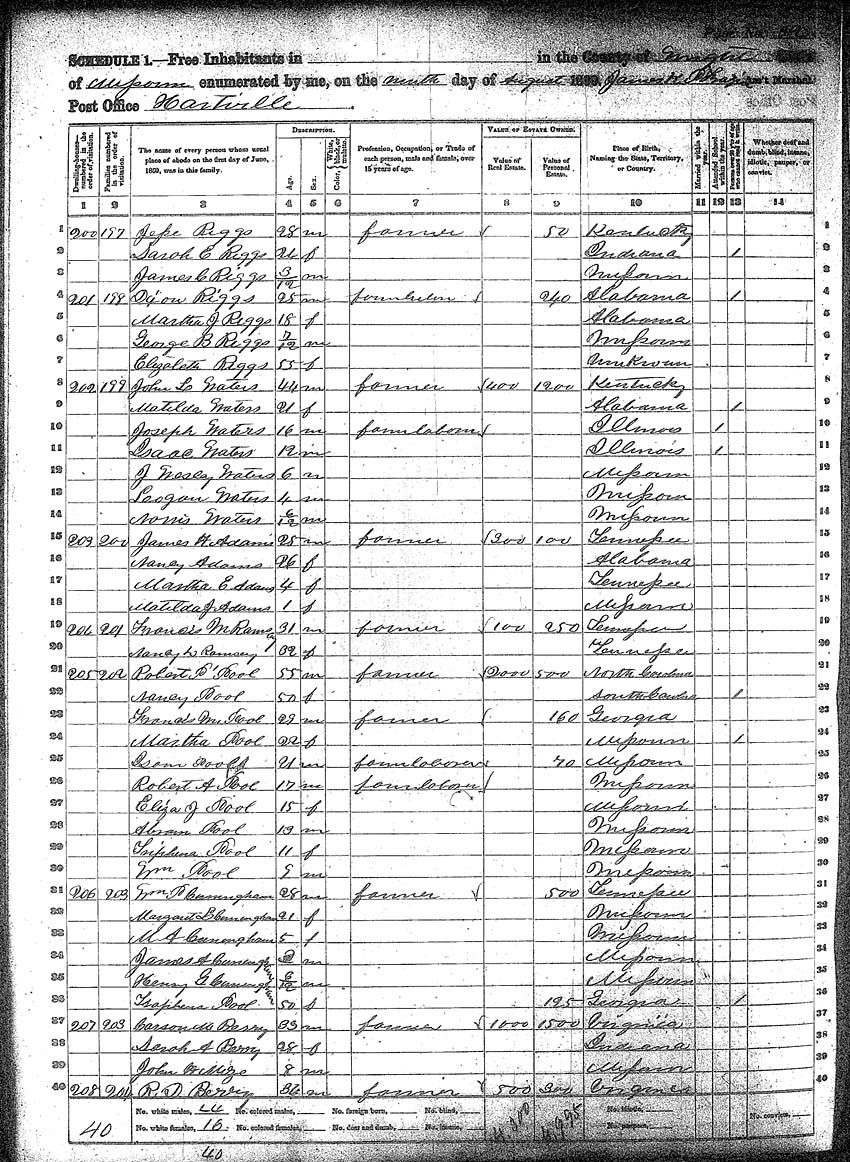 Page No.
SCHEDULE 1.—Free Inhabitants in in the County of
of Missouri enumerated by me, on the ninth day of August Ass't Marshal.
Post Office Hartville
Dwelling-houses—numbered in the order of visitation. Families numbered in the order of visitation. The name of every person whose usual place of abode on the first day of June, 1860, was in this family. DESCRIPTION. Age. Sex. Color, White, black, or mulatto. Profession, Occupation, or Trade of each person, male and female, over 15 years of age. VALUE OF ESTATE OWNED. Value of Real Estate. Value of Personal Estate. Place of Birth, Naming the State, Territory, or Country. Married within the year. Attended School within the year. Whether deaf and dumb, blind, insane, idiotic, pauper, or convict.
1 2 3 4 5 6 7 8 9 10 11 12 13 14
1 200 197 Jesse Riggs 28 m farmer 50 Kentucky 1
2 Sarah E Riggs f Indiana 1 2
3 James C Riggs 3/12 m Missouri 3
4 201 198 Dixon Riggs 25 m 240 Alabama 1 4
5 Martha J Riggs 18 f Alabama 5
6 George B Riggs 7/12 m Missouri 6
7 Elizabeth Riggs 55 f Unknown 7
8 202 199 John Waters 44 m farmer 400 1200 Kentucky 8
9 Matilda Waters 21 f Alabama 1 9
10 Joseph Waters 16 m farm laborer Illinois 1 10
11 Isaac Waters 12 m Illinois 1 11
12 J Wesley Waters 6 m Missouri 12
13 Logan Waters 4 m Missouri 13
14 Norris Waters 6/12 m Missouri 14
15 203 200 James H Adams 25 m farmer 300 100 Tennessee 15
16 Nancy Adams 26 f Alabama 16
17 Martha E Adams 4 f Tennessee 17
18 Matilda J Adams 1 f Missouri 18
19 204 201 Francis M Ramsey 31 m farmer 100 250 Tennessee 19
20 Nancy Ramsey 32 f Tennessee 20
21 205 202 Robert Pool 55 m farmer 2000 500 North Carolina 21
22 Nancy Pool 50 f South Carolina 1 22
23 Francis M Pool 22 m farmer 160 Georgia 23
24 Martha Pool 22 f Missouri 1 24
25 Isom Pool 21 m farm laborer 70 Missouri 25
26 Robert A Pool 17 m farm laborer Missouri 26
27 Eliza J Pool 15 f Missouri 27
28 Abram Pool 13 m Missouri 28
29 Triphena Pool 11 f Missouri 29
30 Wm Pool m Missouri 30
31 206 203 Wm Cunningham 28 m farmer 500 Tennessee 31
32 Margaret Cunningham 21 f Missouri 32
33 M A Cunningham 5 f Missouri 33
34 James Cunningham m Missouri 34
35 Henry Cunningham 6/12 m Missouri 35
36 Pool 50 f 125 Georgia 1 36
37 207 203 Carson Berry 33 m farmer 1000 1500 Virginia 37
38 Sarah A Berry 28 f Indiana 38
39 John 8 m Missouri 39
40 208 204 R. D. 36 m farmer 500 300 Virginia 40
No. white males, 24 No. colored males, No. foreign born, No. blind, No. idiotic, No. convicts,
40 No. white females, 16 No. colored females, No. deaf and dumb, No. insane, No. paupers,
40